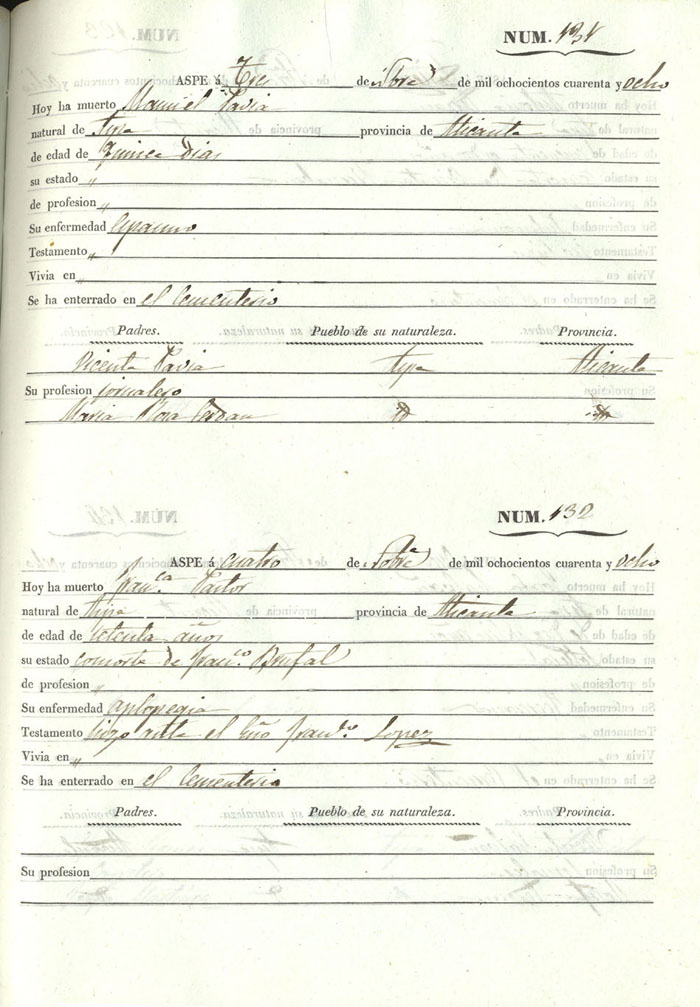 NUM. 131
ASPE á Tres de Nbre de mil ochocientos cuarenta y ocho
Hoy ha muerto Manuel Pavia
natural de provincia de Alicante
de edad de Quince Dias
su estado "
de profesion "
Su enfermedad espasmo
Testamento "
Vivia en "
Se ha enterrado en el Cementerio
Padres. Pueblo de su naturaleza. Provincia.
Vicente Pavia Aspe Alicante
Su profesion jornalero
Maria Rosa Cerdan id id
NUM. 132
ASPE á cuatro de Nobre de mil ochocientos cuarenta y ocho
Hoy ha muerto Fran.ca Pastor
natural de provincia de Alicante
de edad de setenta años
su estado consorte de Fran.co Brufal
de profesion "
Su enfermedad aplopegia
Testamento hizo ante el Lopez
Vivia en "
Se ha enterrado en el Cementerio
Padres. Pueblo de su naturaleza. Provincia.
Su profesion